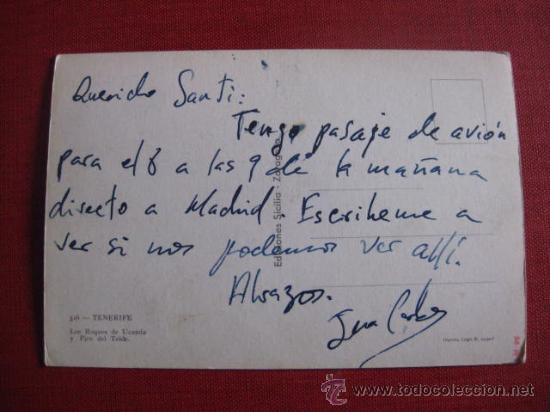 Querido Santi:
Tengo pasaje de avión
para el 8 a las 9 de la mañana
directo a Madrid. Escribeme a
ver si nos podemos ver allí.
Abrazos.
Juan Carlos
Ediciones Sicilia - Zaragoza
516 — TENERIFE
Los Roques de Ucanca
y Pico del Teide.
todocoleccion.net